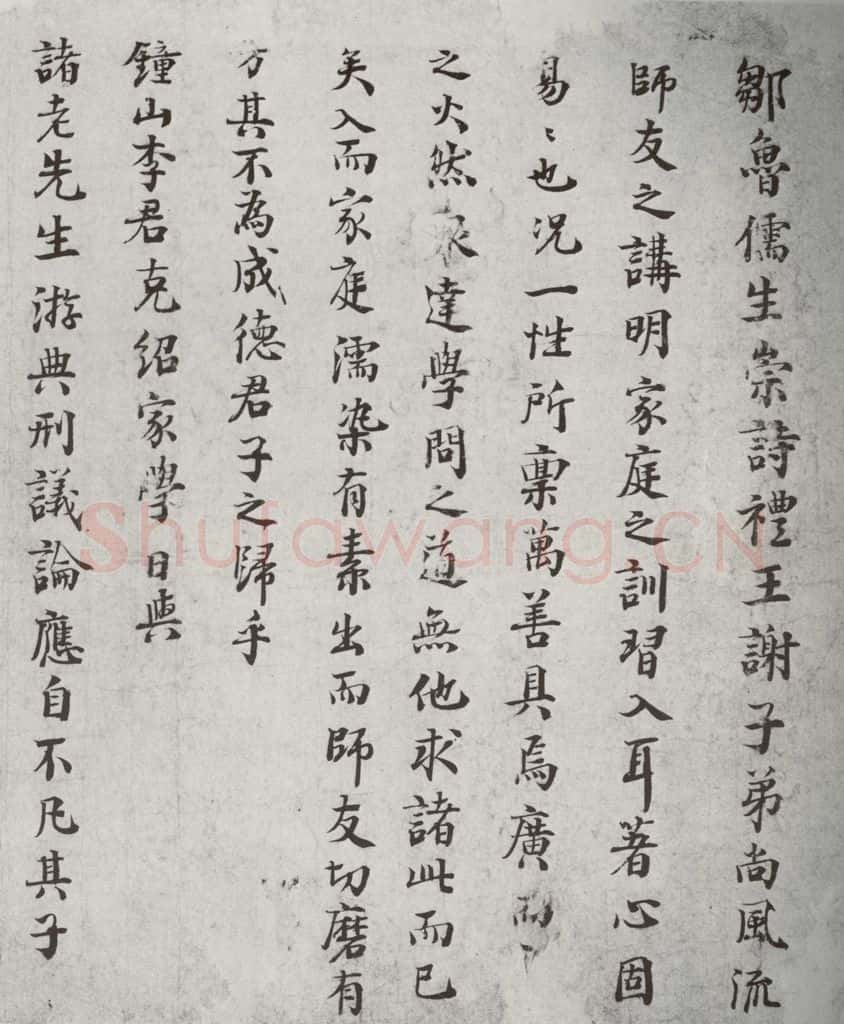 鄒魯儒生崇詩禮王謝子弟尚風流
師友之講明家庭之訓習入耳著心固
易〻也況一性所稟萬善具焉廣而
之火然泉達學問之道無他求諸此而已
矣入而家庭濡染有素出而師友切磨有
方其不為成德君子之歸乎
鐘山李君克紹家學日與
諸老先生游典刑議論應自不凡其子
Shufawang.CN